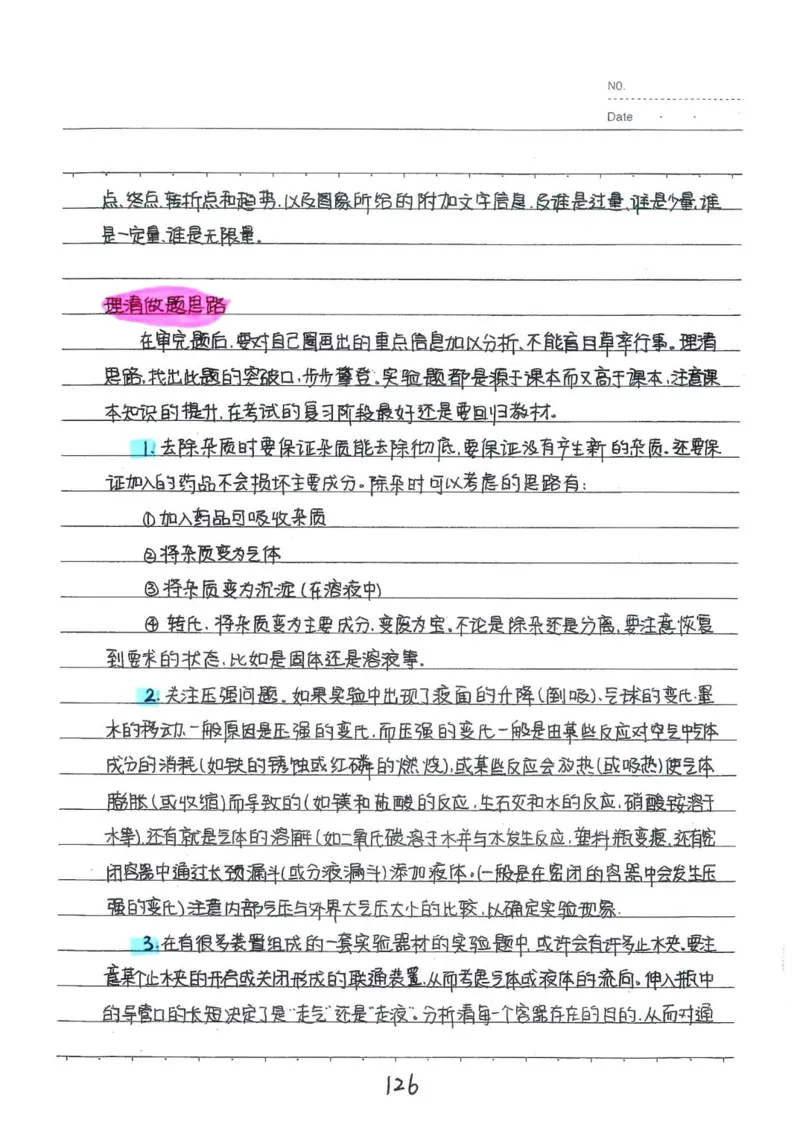 NO.
Date
点、终点、转折点和趋势、以及图象所给的附加文字信息、及谁是过量、谁是少量、谁
是一定量、谁是无限量。
理清做题思路
在审完题后，要对自己圈画出的重点信息加以分析、不能盲目草率行事。理清
思路，找出此题的突破口，步步攀登。实验题都是源于课本而又高于课本，注意课
本知识的提升，在考试的复习阶段最好还是要回归教材。
1. 去除杂质时要保证杂质能去除彻底，要保证没有产生新的杂质。还要保
证加入的药品不会损坏主要成分。除杂时可以考虑的思路有：
①加入药品可吸收杂质
②将杂质变为气体
③将杂质变为沉淀（在溶液中）
④ 转化、将杂质变为主要成分、变废为宝。不论是除杂还是分离，要注意恢复
到要求的状态，比如是固体还是溶液等。
2. 关注压强问题。如果实验中出现了液面的升降（倒吸）、气球的变化、墨
水的移动、一般原因是压强的变化，而压强的变化一般是由某些反应对空气中气体
成分的消耗（如铁的锈蚀或红磷的燃烧），或某些反应会放热（或吸热）使气体
膨胀（或收缩）而导致的（如镁和盐酸的反应，生石灰和水的反应，硝酸铵溶于
水等），还有就是气体的溶解（如二氧化碳溶于水并与水发生反应，塑料瓶变瘪，还有密
闭容器中通过长颈漏斗（或分液漏斗）添加液体。（一般是在密闭的容器中会发生压
强的变化）注意内部气压与外界大气压大小的比较，以确定实验现象.
3. 在有很多装置组成的一套实验器材的实验题中，或许会有许多止水夹。要注
意某个止水夹的开启或关闭形成的联通装置，从而考虑气体或液体的流向。伸入瓶中
的导管口的长短决定了是“走气”还是“走液”。分析清每一个容器存在的目的，从而对通
126